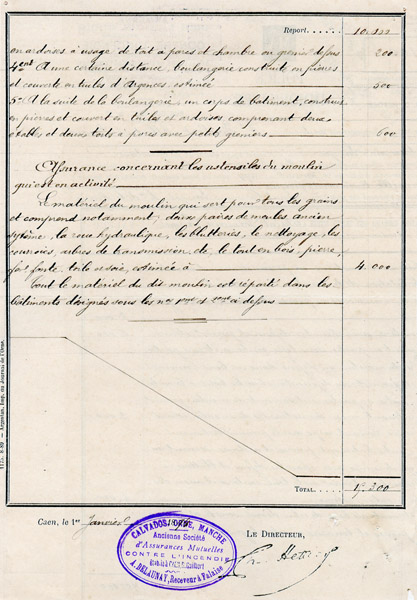 Report. 10.100
en ardoises à usage de toit à porcs et chambre ou grenier dessus 200
4ent A une certaine distance, boulangerie construite en pierres
et couverte en tuiles d'Argences, estimée 500
5° A la suite de la boulangerie, un corps de bâtiment, construit
en pierres et couvert en tuiles et ardoises comprenant deux
étables et deux toits à porcs avec petits greniers 600
Assurance concernant les ustensiles du moulin
qui est en activité
Le matériel du moulin qui sert pour tous les grains
et comprend notamment, deux paires de meules ancien
système, la roue hydraulique, les blutteries, le nettoyage, les
courroies, arbres de transmission, etc, le tout en bois, pierre,
fer, fonte, toile et soie, estimée à 4.000
Tout le matériel du dit moulin est réparti dans les
bâtiments désignés sous les nos et ci dessus
TOTAL. 300
Caen, le 1er Janvier
LE DIRECTEUR,
CALVADOS, ORNE, MANCHE
Ancienne Société
d'Assurances Mutuelles
CONTRE L'INCENDIE
A. DELAUNAY, Receveur à Falaise
1175. 8-89 — Argentan, Imp. du Journal de l'Orne.